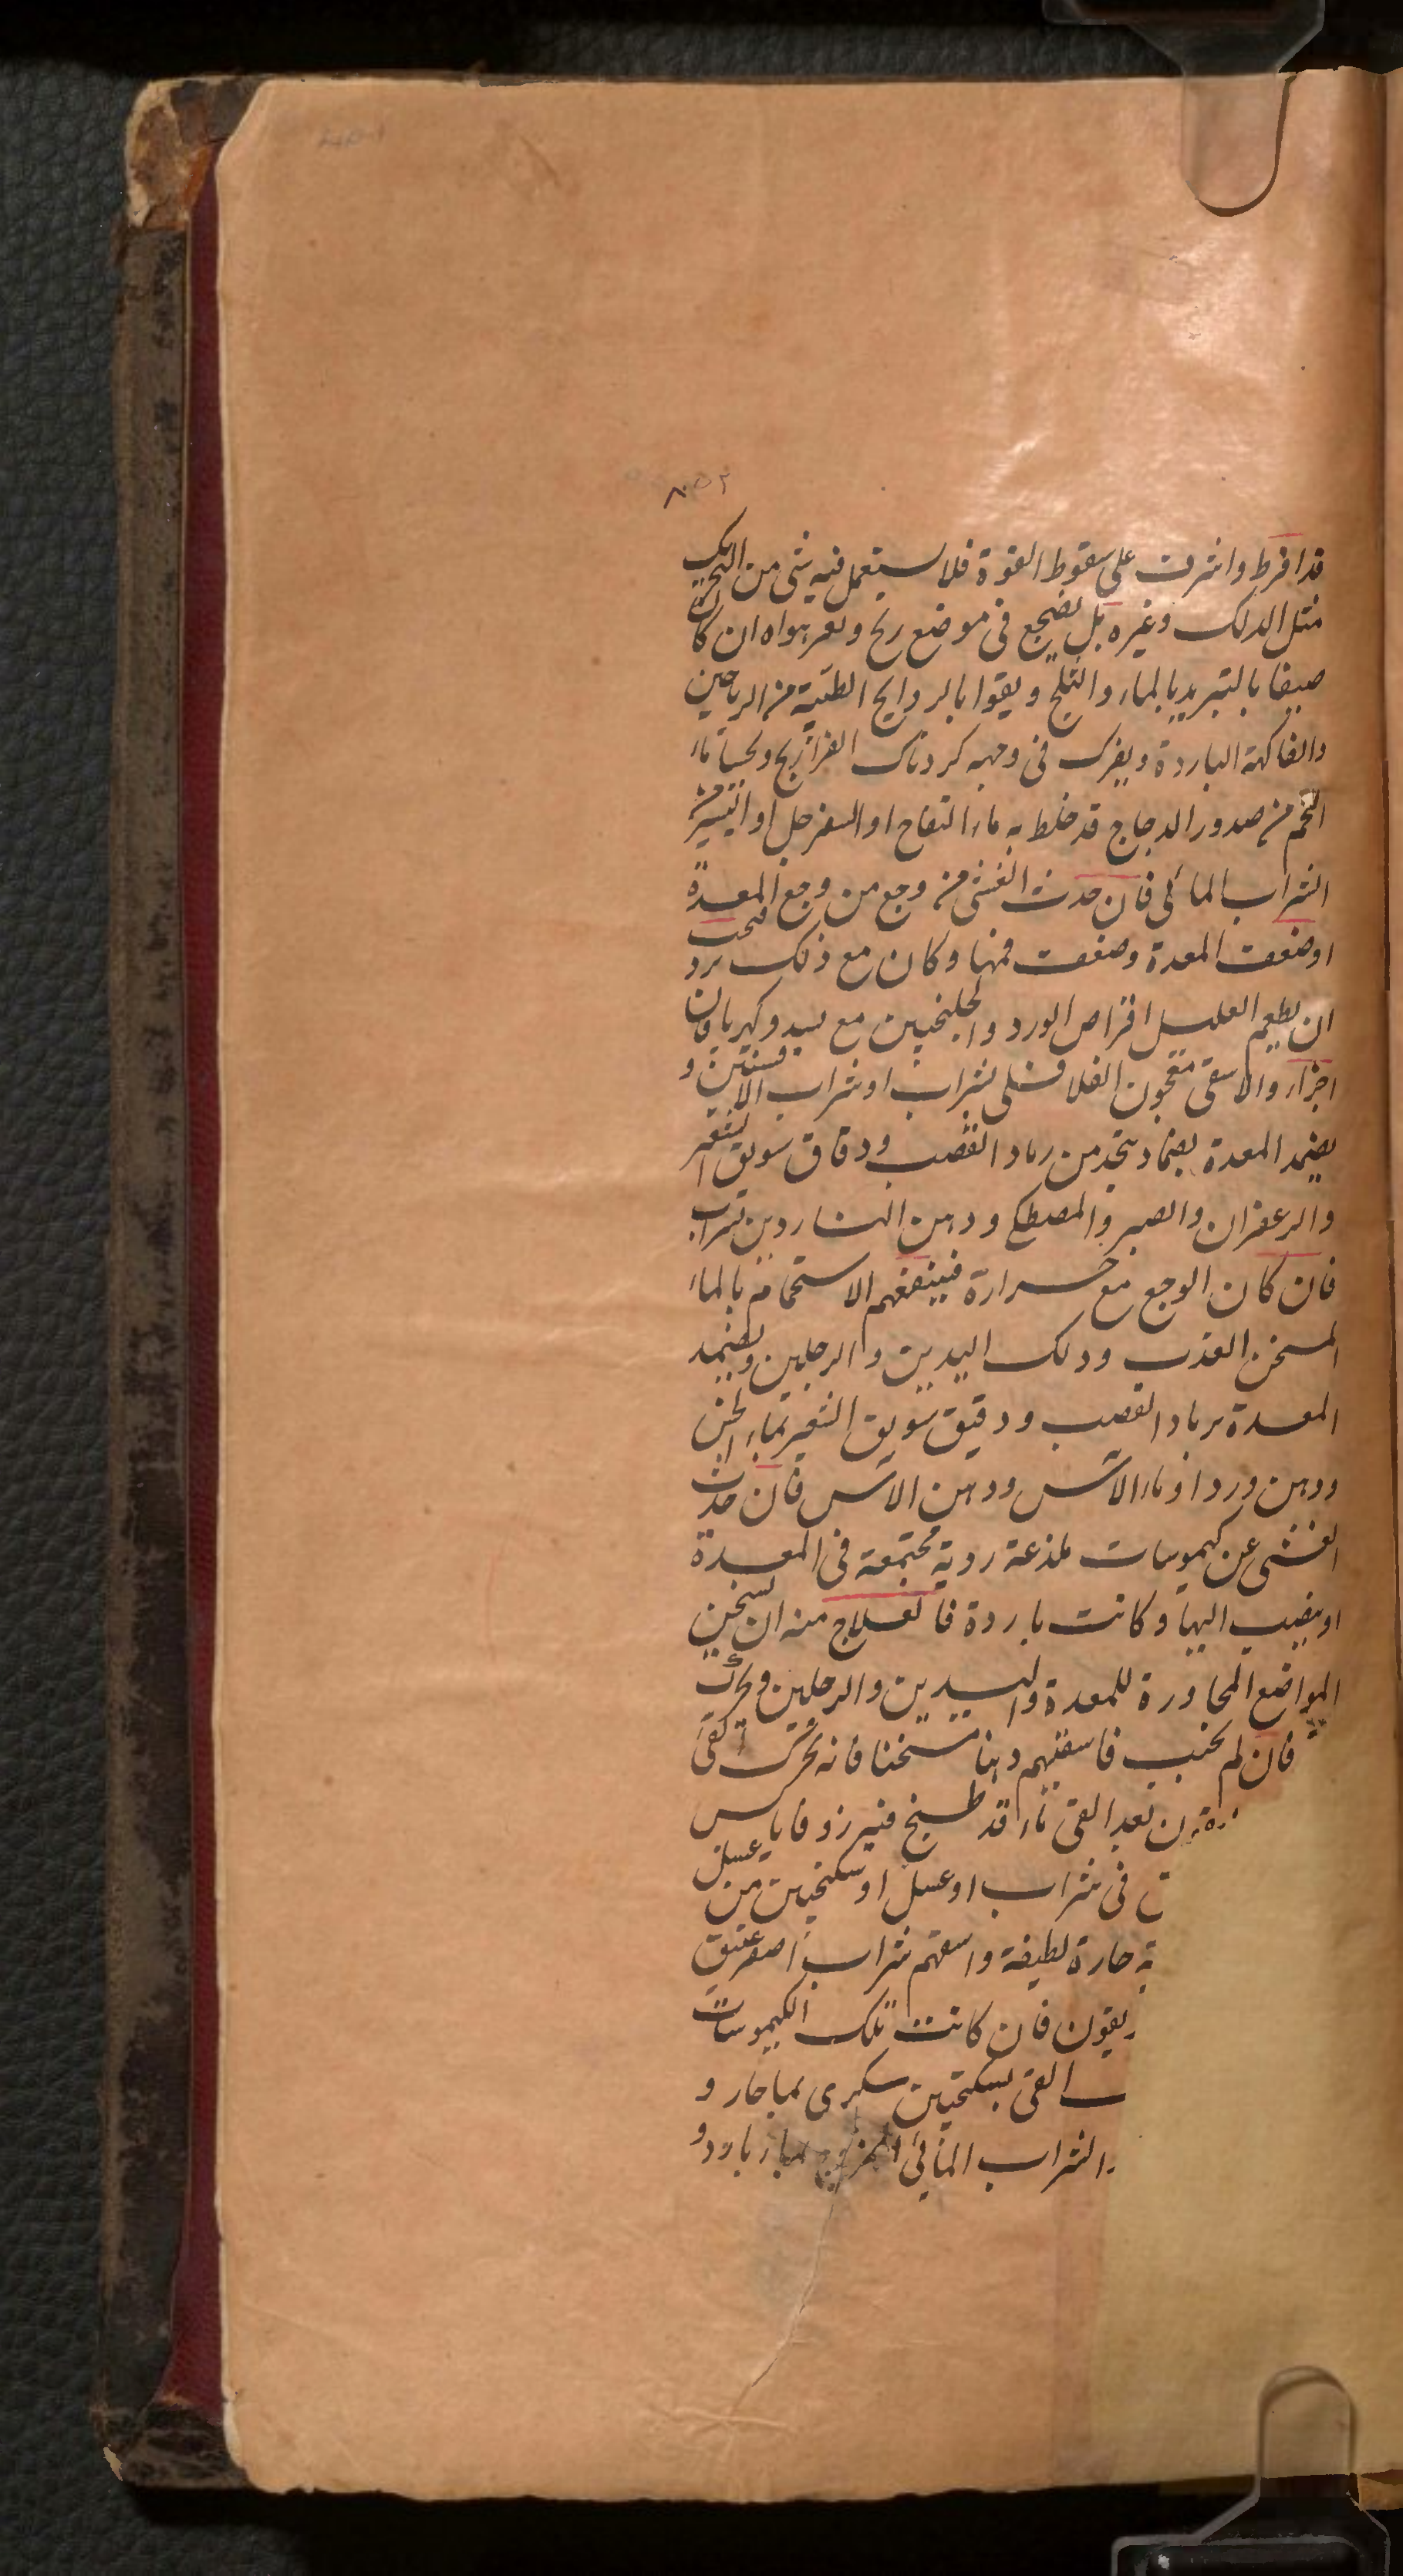 ٨٥٢
قد افرط واشرفت على سقوط القوة فلا يستعمل فيه شى من التحريك
مثل الدلك وغيره بل يضجع فى موضع ريح هواه ان كان
صيفا بالتبريد بالماء والثلج ويقوا بالروايح الطيبة من الرياحين
والفاكهة الباردة ويفرك فى وجهه كردناك الفراريج ويحسا ماء
اللحم من صدور الدجاج قد خلط به ماء التفاح او السفرجل او اليسير من
الشراب المائى فان حدث الغشى من وجع من وجع المعدة
اوضعفت المعدة وضعفت فمها وكان مع ذلك برد فيجب
ان يطعم العليل اقراص الورد والجلنجبين مع سد وكهربا فان
اجزاء والا سقى معجون الفلافلى بشراب او شراب الافسنتين و
يضمد المعدة بضماد يتخذ من رماد القصب ودقاق سويق الشعير
والزعفران والصبر والمصطكى ودهن الناردين بشراب
فان كان الوجع مع حرارة فينفعهم الاستحمام بالماء
المسخن العذب ودلك اليدين والرجلين ويضمد
المعدة برماد القصب ودقيق سويق الشعير بماء الجبن
ودهن ورد او ماء الآس ودهن الآس فان حدث
الغشى عن كيموسات لمذعة ردية مجتمعة فى المعدة
او ينصب اليها وكانت باردة فالعلاج منه ان يسخن
المواضع المجاورة للمعدة واليدين والرجلين ويحرك
فان لم يجب فاسقيهم دهنا مسخنا فانه يحرك القى
بعد القى ماء قد طبخ فيه زوفا يابس
فى شراب او عسل او سكنجبين من عسل
حارة لطيفة واسقهم شراب اصفر عتيق
يقون فان كانت تلك الكيموسات
القى بسكنجبين سكرى بما حار و
والشراب المائى الممزوج بماء بارد و